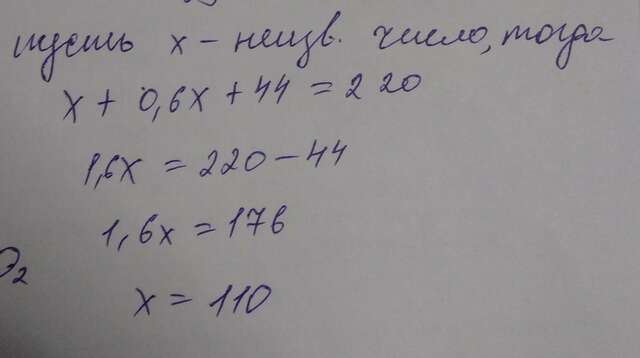 пусть x – неизв. число, тогда
x + 0,6x + 44 = 220
1,6x = 220 – 44
1,6x = 176
x = 110